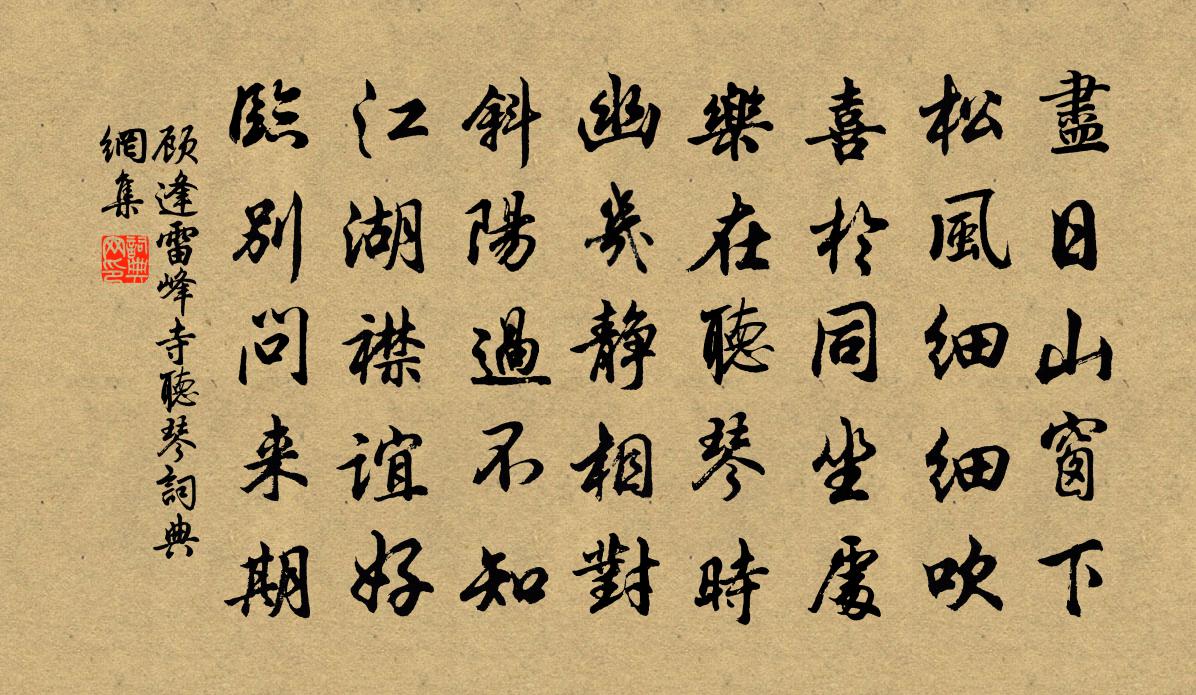 盡日山窗下
松風細細吹
喜於同坐處
樂在聽琴時
幽幾靜相對
斜陽過不知
江湖襟誼好
臨別問来期
顾逢雷峰寺聽琴詞典
網集
詞典網印